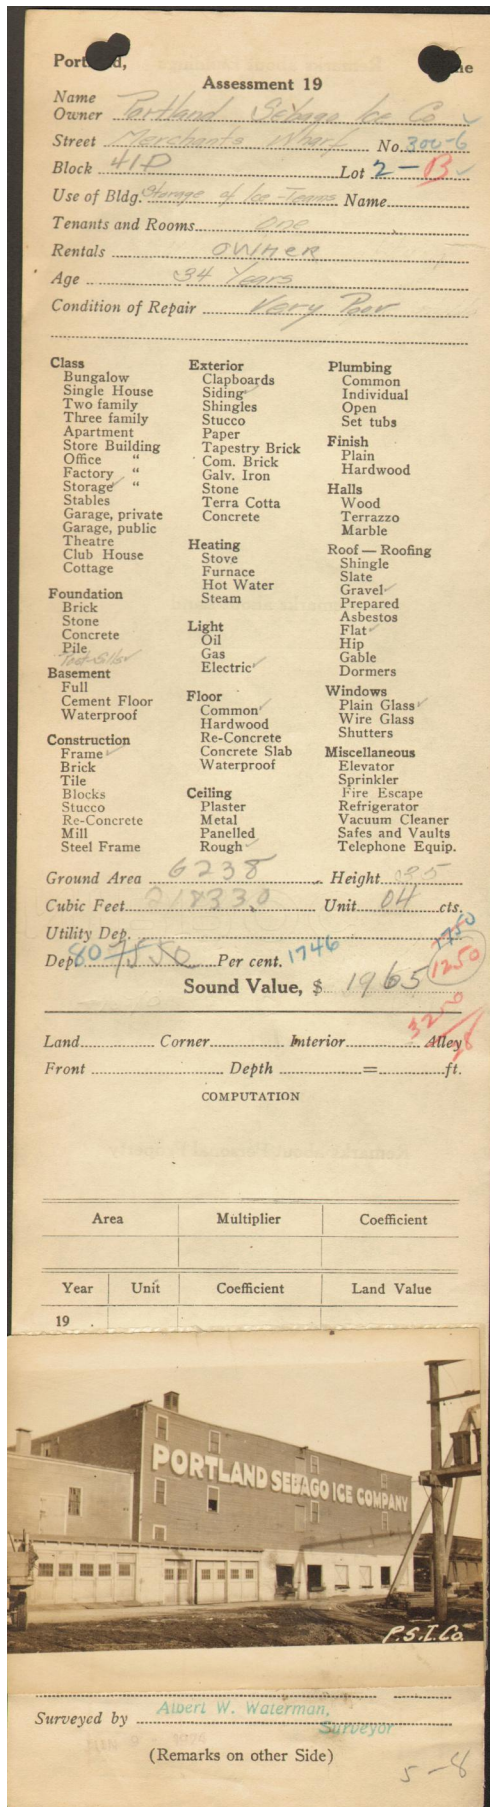 Portland,
Assessment 19
Name
Owner Portland Sebago Ice Co
Street Merchants Wharf No. 300-6
Block 41D Lot 2-B
Use of Bldg. Storage of Ice-Teams Name
Tenants and Rooms one
Rentals OWNER
Age 34 Years
Condition of Repair Very Poor
Class
Bungalow
Single House
Two family
Three family
Apartment
Store Building
Office "
Factory "
Storage "
Stables
Garage, private
Garage, public
Theatre
Club House
Cottage
Foundation
Brick
Stone
Concrete
Pile
Post-Sills
Basement
Full
Cement Floor
Waterproof
Construction
Frame
Brick
Tile
Blocks
Stucco
Re-Concrete
Mill
Steel Frame
Exterior
Clapboards
Siding
Shingles
Stucco
Paper
Tapestry Brick
Com. Brick
Galv. Iron
Stone
Terra Cotta
Concrete
Heating
Stove
Furnace
Hot Water
Steam
Light
Oil
Gas
Electric
Floor
Common
Hardwood
Re-Concrete
Concrete Slab
Waterproof
Ceiling
Plaster
Metal
Panelled
Rough
Plumbing
Common
Individual
Open
Set tubs
Finish
Plain
Hardwood
Halls
Wood
Terrazzo
Marble
Roof — Roofing
Shingle
Slate
Gravel
Prepared
Asbestos
Flat
Hip
Gable
Dormers
Windows
Plain Glass
Wire Glass
Shutters
Miscellaneous
Elevator
Sprinkler
Fire Escape
Refrigerator
Vacuum Cleaner
Safes and Vaults
Telephone Equip.
Ground Area 6238 Height 35
Cubic Feet 218330 Unit 04 cts.
Utility Dep. 1750
Dep. 80 7550 Per cent. 1746 1250
Sound Value, $ 1965
3200
Land Corner Interior Alley
Front Depth = ft.
COMPUTATION
Area Multiplier Coefficient
Year Unit Coefficient Land Value
19
PORTLAND SEBAGO ICE COMPANY
P.S.I.Co.
Surveyed by Albert W. Waterman,
Surveyor
(Remarks on other Side)
5-8